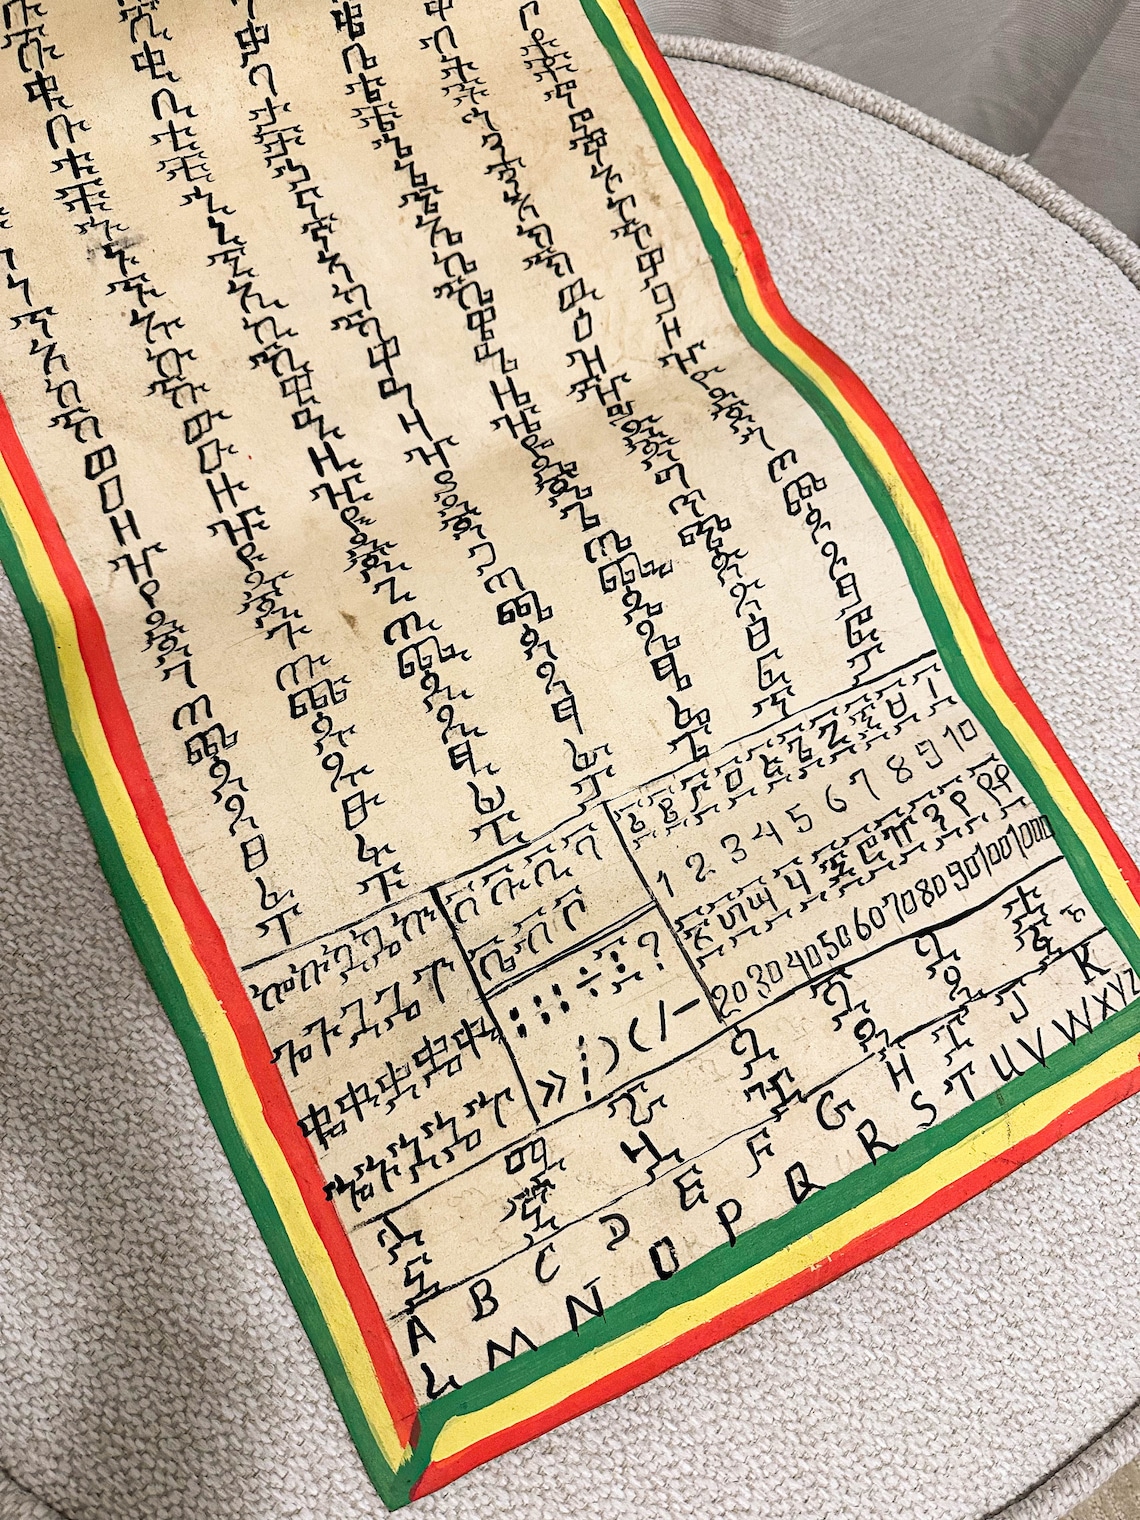 ቁ ቂ ቃ ቄ ቅ
ቡ ቢ ባ ቤ ብ ቦ
ቱ ቲ ታ ቴ ት ቶ
ቹ ቺ ቻ ቼ ች ቾ
ኀ ኁ ኂ ኃ ኄ ኅ ኆ
ነ ኑ ኒ ና ኔ ን ኖ
ኘ ኙ ኚ ኛ ኜ ኝ ኞ
አ ኡ ኢ ኣ ኤ እ ኦ
ከ ኩ ኪ ካ ኬ ክ ኮ
ኸ ኹ ኺ ኻ ኼ ኽ ኾ
ወ ዉ ዊ ዋ ዌ ው ዎ
ዐ ዑ ዒ ዓ ዔ ዕ ዖ
ዘ ዙ ዚ ዛ ዜ ዝ ዞ
ዠ ዡ ዢ ዣ ዤ ዥ ዦ
የ ዩ ዪ ያ ዬ ይ ዮ
ደ ዱ ዲ ዳ ዴ ድ ዶ
ጀ ጁ ጂ ጃ ጄ ጅ ጆ
ገ ጉ ጊ ጋ ጌ ግ ጎ
ጠ ጡ ጢ ጣ ጤ ጥ ጦ
ጨ ጩ ጪ ጫ ጬ ጭ ጮ
ጰ ጱ ጲ ጳ ጴ ጵ ጶ
ጸ ጹ ጺ ጻ ጼ ጽ ጾ
ፀ ፁ ፂ ፃ ፄ ፅ ፆ
ፈ ፉ ፊ ፋ ፌ ፍ ፎ
ፐ ፑ ፒ ፓ ፔ ፕ ፖ
ኰ ኲ ኳ ኴ
ጐ ጓ ጔ
ቈ ቊ ቋ ቌ
ኈ ኊ ኋ ኌ
፡ ። ÷ ?
» ! ) ( / -
፩ ፪ ፫ ፬ ፭ ፮ ፯ ፰ ፱ ፲
1 2 3 4 5 6 7 8 9 10
፳ ፴ ፵ ፶ ፷ ፸ ፹ ፺ ፻ ፲፻
20 30 40 50 60 70 80 90 100 1000
A B C D E F G H I J K
L M N O P Q R S T U V W X Y Z